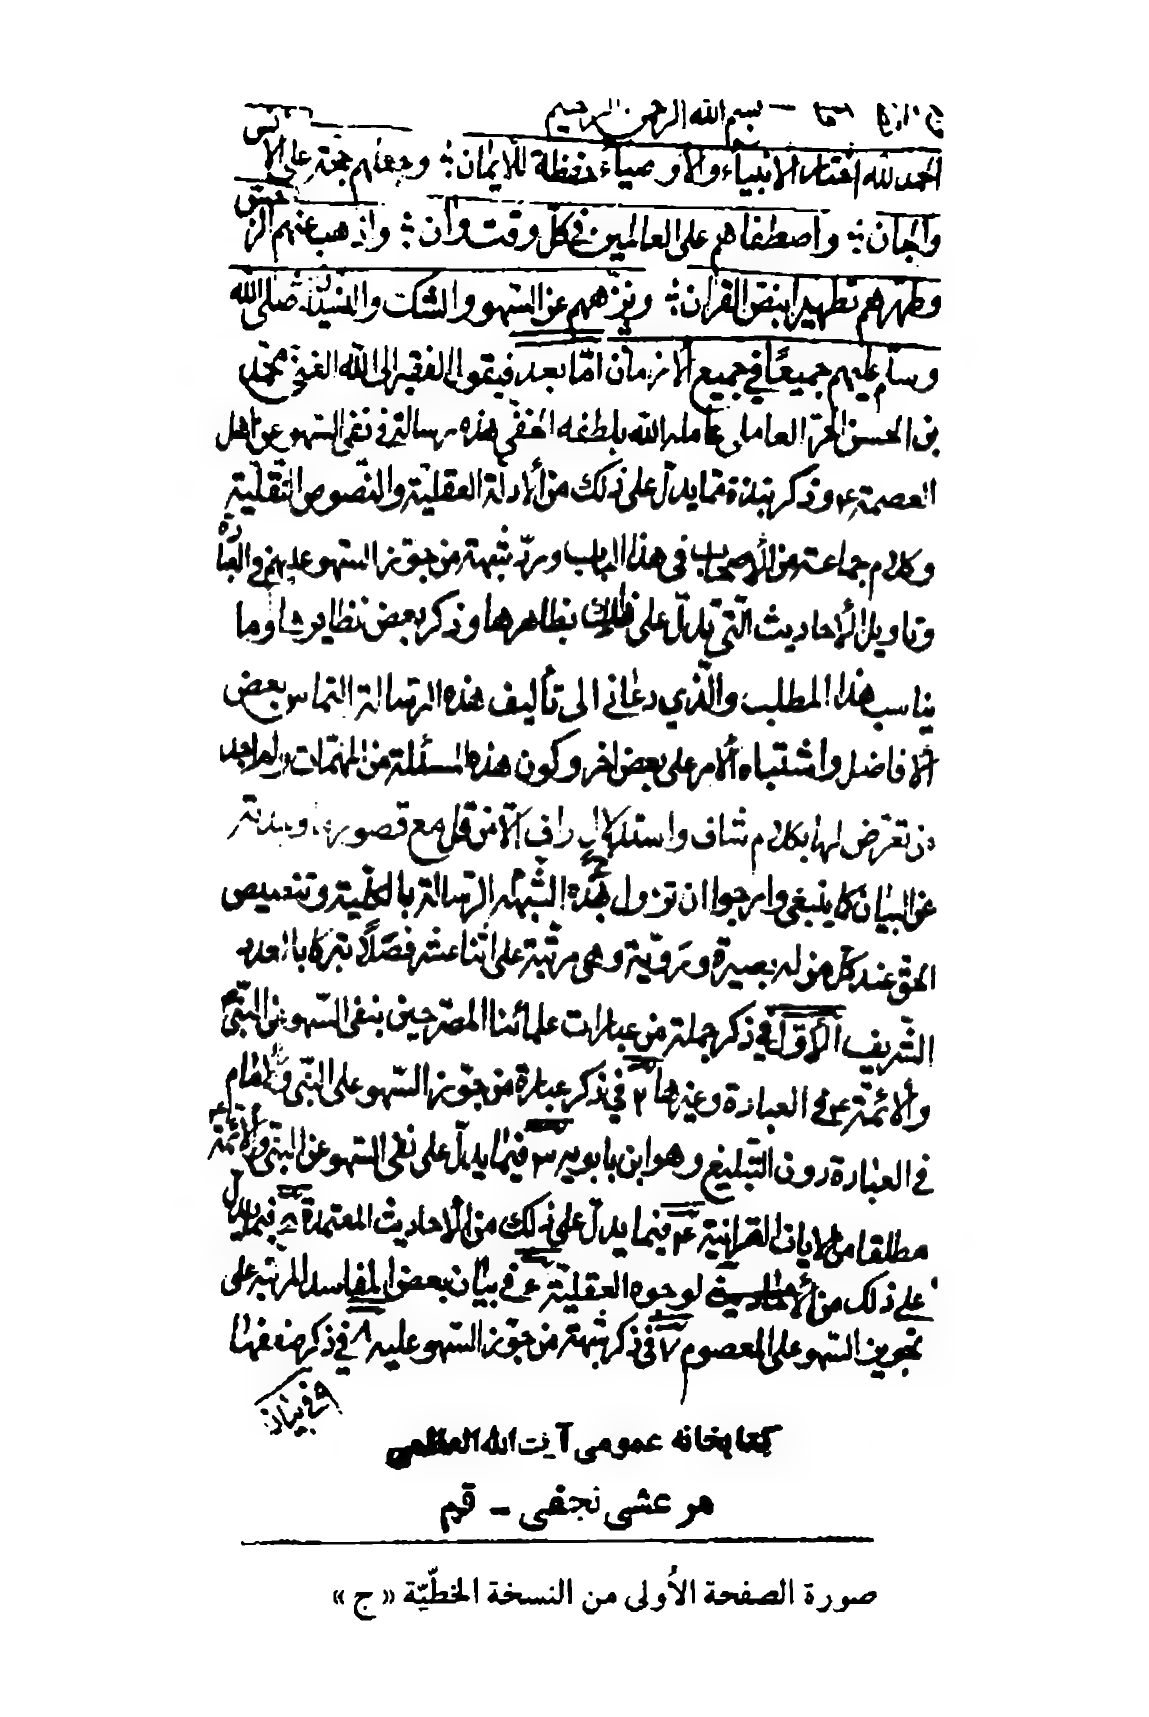 بسم الله الرحمن الرحيم
الحمد لله اختار الانبياء والأوصياء حفظة للايمان وجعلهم حجته على الانس
والجان واصطفاهم على العالمين في كل وقت وآن واذهب عنهم الرجس
وطهرهم تطهيرا بنص القرآن ونزههم عن السهو والشك والنسيان صلى الله
وسلم عليهم جميعًا في جميع الأزمان امّا بعد فيقول الفقير الى الله الغني محمد
بن الحسن الحر العاملي عامله الله بلطفه الخفي هذه رسالة في نفي السهو عن اهل
العصمة ع وذكر نبذة مما يدل على ذلك من الأدلة العقلية والنّصوص النّقليّة
وكلام جماعة من الأصحاب في هذا الباب وردّ شبهة من جوّز السّهو عليهم في العبادة
وتاويل الأحاديث الّتي تدلّ على ذلك بظاهرها وذكر بعض نظايرها وما
يناسب هذا المطلب والّذي دعاني الى تأليف هذه الرسالة التماس بعض
الافاضل واشتباه الأمر على بعض اخر وكون هذه المسئلة من المهمّات ولم اجد
من تعرّض لها بكلام شاف واستدلال واف الّا من قل مع قصور
عن البيان كما ينبغي وارجوا ان تزول بهذه الرسالة الشّبهة بالكلّية وتتمحيص
الحق عند كلّ من له بصيرة ورويّة وهي مرتبة على اثنا عشر فصلًا تبركا بالعدد
الشّريف الأوّل في ذكر جملة من عبارات علمائنا المصرّحين بنفي السّهو عن النّبيّ
والأئمّة ع في العبادة وغيرها ٢ في ذكر عبارة من جوّز السّهو على النبّي والامام
في العبادة دون التّبليغ وهو ابن بابويه ٣ فيما يدلّ على نفي السّهو عن النبّي والأئمّة
مطلقا من الايات القرانيّة ٤ فيما يدلّ على ذلك من الأحاديث المعتمدة ٥ فيما يدل
على ذلك من الوجوه العقليّة ٦ في بيان بعض المفاسد المرتبة على
تجويز السّهو على المعصوم ٧ في ذكر شبهة من جوّز السّهو عليه ٨ في ذكر ضعفها
٩ في بيان
کتابخانه عمومی آیت الله العظمی
مرعشی نجفی - قم
صورة الصفحة الأولى من النسخة الخطّيّة « ج »